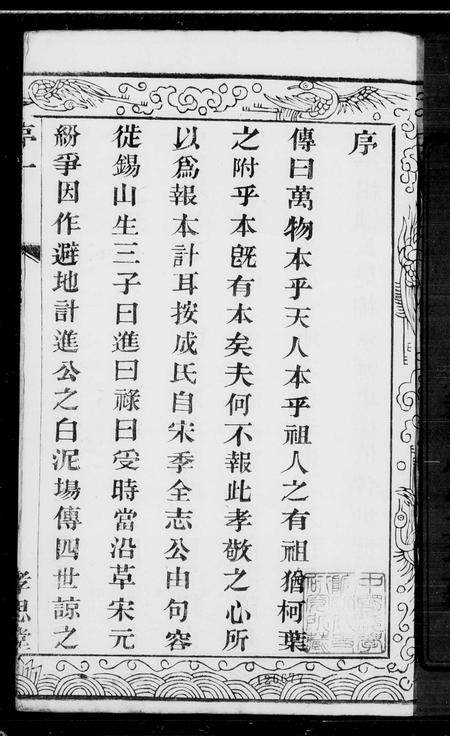 序
傳曰萬物本乎天人本乎祖人之有祖猶柯葉
之附乎本旣有本矣夫何不報此孝敬之心所
以爲報本計耳按成氏自宋季全志公由句容
徙錫山生三子曰進曰祿曰受時當沿革宋元
紛爭因作避地計進公之白泥場傳四世諒之
序一
孝思堂
126677